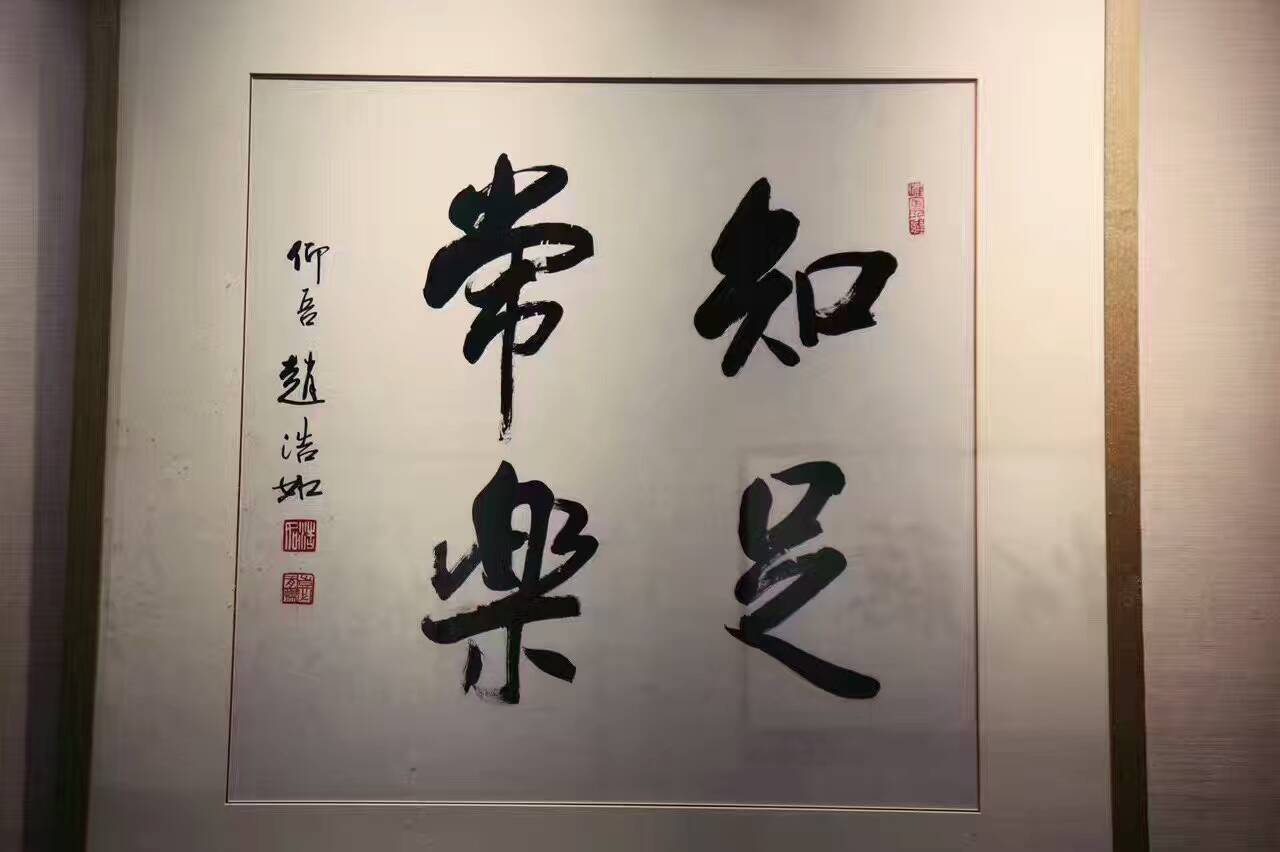 知足
常樂
仰吾 趙浩如